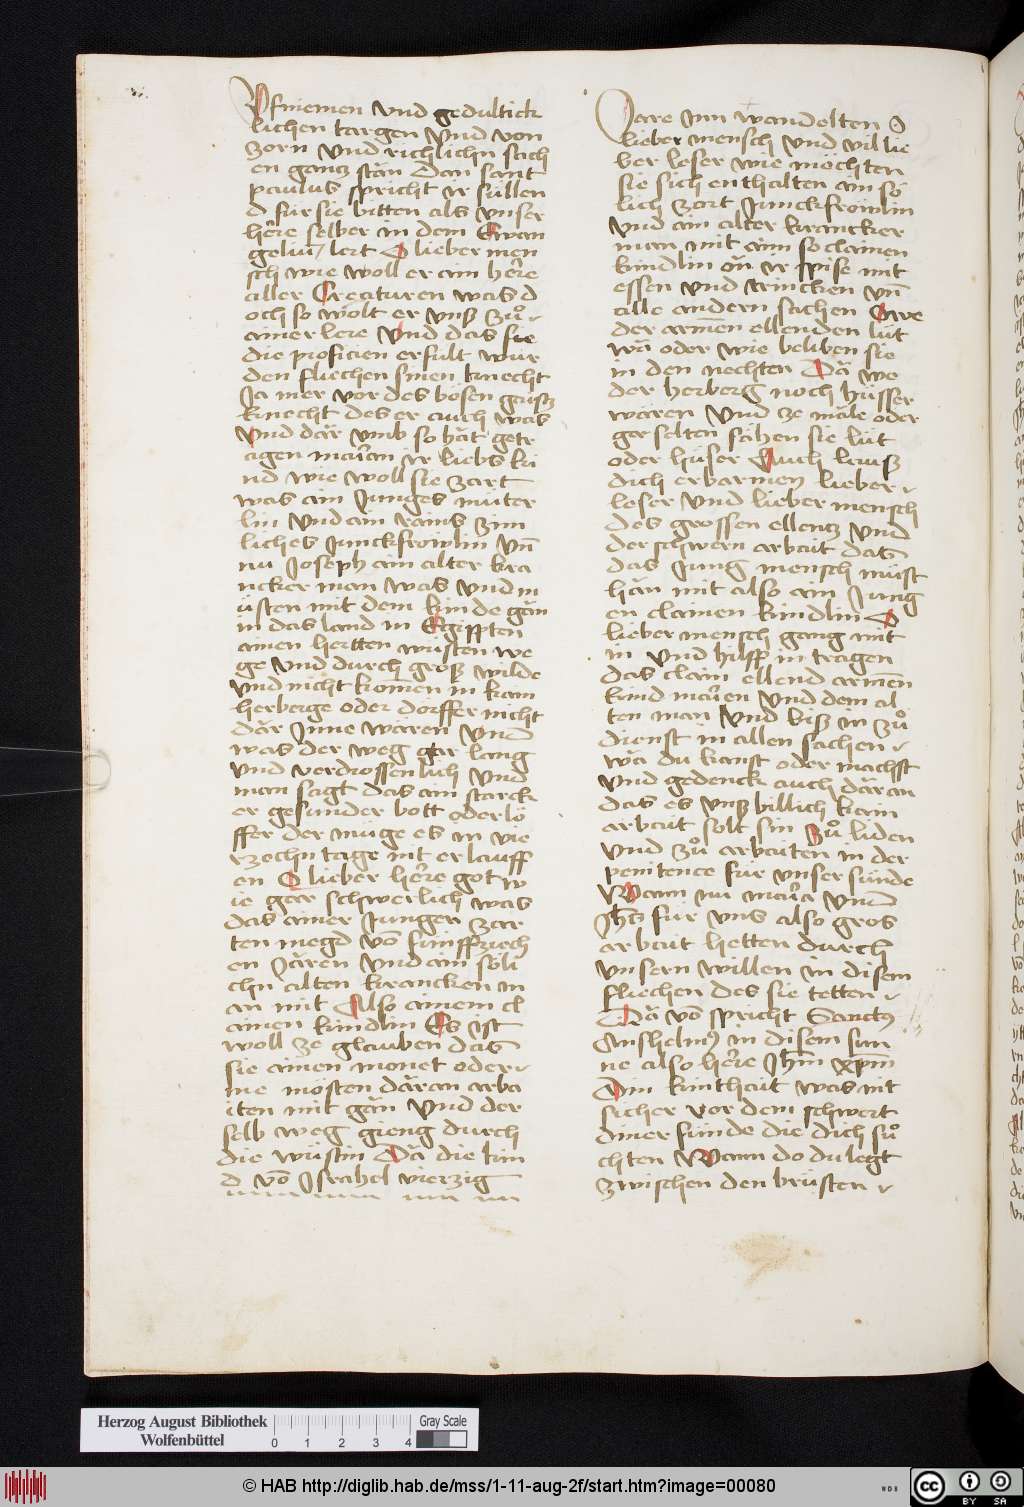 Vfniemen vnd gedultick
lichen tragen vnd von
zorn vnd richlichn sach
en gantz stan dan sant
paulus spricht ir süllen
d für sie bitten als vnser
here selber in dem Ewan
geliu lert O lieber men
sch wie woll er ain here
aller Creaturen was d
och so wolt er vnß zuͦ
ainer lere vnd das sie
die proficien erfult wur
den fliechen sinen knecht
Ja mer vor des bösen gaistz
knecht des er auch was
vnd dar vmb so hät getr
agen mariam ir liebs ki
nd wie woll sie zart
was ain Junges müter
lin vnd ain rains zim
liches Junckfröwlin vn̄
nu Joseph ain alter kra
ncker man was vnd m
üsten mit dem kinde gän
in das land in Egipften
ainen hertten wüsten we
ge vnd durch groß wilde
vnd nicht komen in kain
herberge oder dörffer nicht
där Jnne wären Vnd
was der weg gar lang
vnd verdrossenlich vnd
man sagt das ain starck
er gesunder bott oder lö
ffer der müge es in vie
rzechn tage nit erlauff
en O lieber here got w
ie gar schwerlich was
das ainer Junger zar
ten megd vō fünffziech
en Jären vnd ain söli
chn alten krancken m
an mit Also ainem cl
ainen kindlin Es ist
woll ze glauben das
sie ainen monet oder
me mösten däran arba
iten mit gän vnd der
selb weg gieng durch
die wüstin Dä die kin
d vō Jsrahel vierzig
Jare inn wandelten O
lieber mensch vnd vil lie
ber leser wie möchten
sie sich enthalten ain sö
lich zort Junckfröwlin
vnd ain alter krancker
man mit aim so clainen
kindlin on ir spise mit
essen vnd trincken vn̄
alle andern sachen Owe
der armen ellenden lüt
wä oder wie beliben sie
in den nechten Dä we
der herberg noch hüsser
wären vnd ze mäle oder
gar selten sähen sie lüt
oder hüser Auch lauß
dich erbarmen lieber
loser vnd lieber mensch
des grossen ellentz vnd
der schwern arbait das
das Jung mensch müst
hän mit also ain Jung
en clainen kindlin O
lieber mensch gang mit
in vnd hilff in tragen
das clain ellend armen
kind marien vnd dem al
ten man vnd biß in zuͦ
dienst in allen sachen
wä du kanst oder machst
vnd gedenck auch däran
das es vnß billich kain
arbait solt sin zuͦ liden
vnd zuͦ arbaiten in der
penitence für vnser sünde
Wann nu maria vnd
Jhs für vns also gros
arbait hetten durch
vnsern willen in disem
fliechen des sie tetten
Dä vō spricht Sanctus
Anshelmus in disem sun
ne also here Jhm xpm
Din kinthait was nit
sicher vor dem schwert
diner fünde die dich suͦ
chten Wann do du legt
zwischen den brüsten
Herzog August Bibliothek
Wolfenbüttel
0 1 2 3 4
Gray Scale
© HAB http://diglib.hab.de/mss/1-11-aug-2f/start.htm?image=00080
WDB
cc BY SA